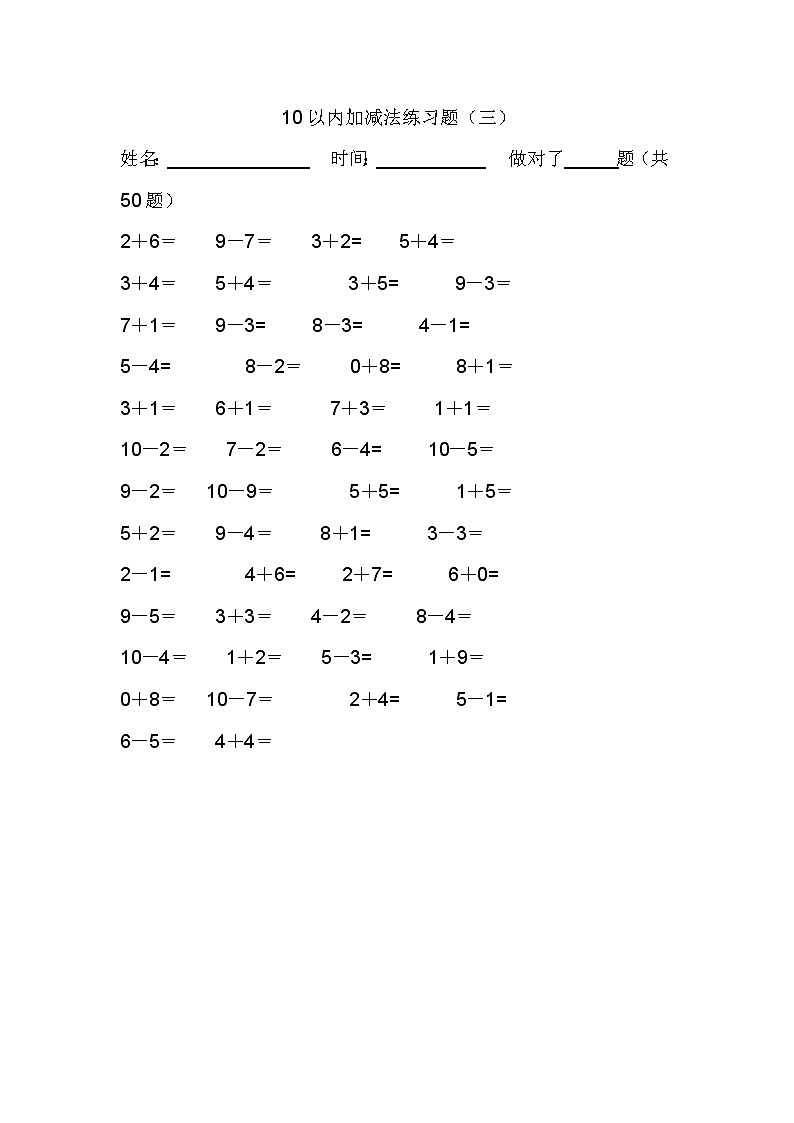 10以内加减法练习题（三）
姓名：_____________ 时间：__________ 做对了_____题（共
50题）
2＋6＝ 9－7＝ 3＋2= 5＋4＝
3＋4＝ 5＋4＝ 3＋5= 9－3＝
7＋1＝ 9－3= 8－3= 4－1=
5－4= 8－2＝ 0＋8= 8＋1＝
3＋1＝ 6＋1＝ 7＋3＝ 1＋1＝
10－2＝ 7－2＝ 6－4= 10－5＝
9－2＝ 10－9＝ 5＋5= 1＋5＝
5＋2＝ 9－4＝ 8＋1= 3－3＝
2－1= 4＋6= 2＋7= 6＋0=
9－5＝ 3＋3＝ 4－2＝ 8－4＝
10－4＝ 1＋2＝ 5－3= 1＋9＝
0＋8＝ 10－7＝ 2＋4= 5－1=
6－5＝ 4＋4＝